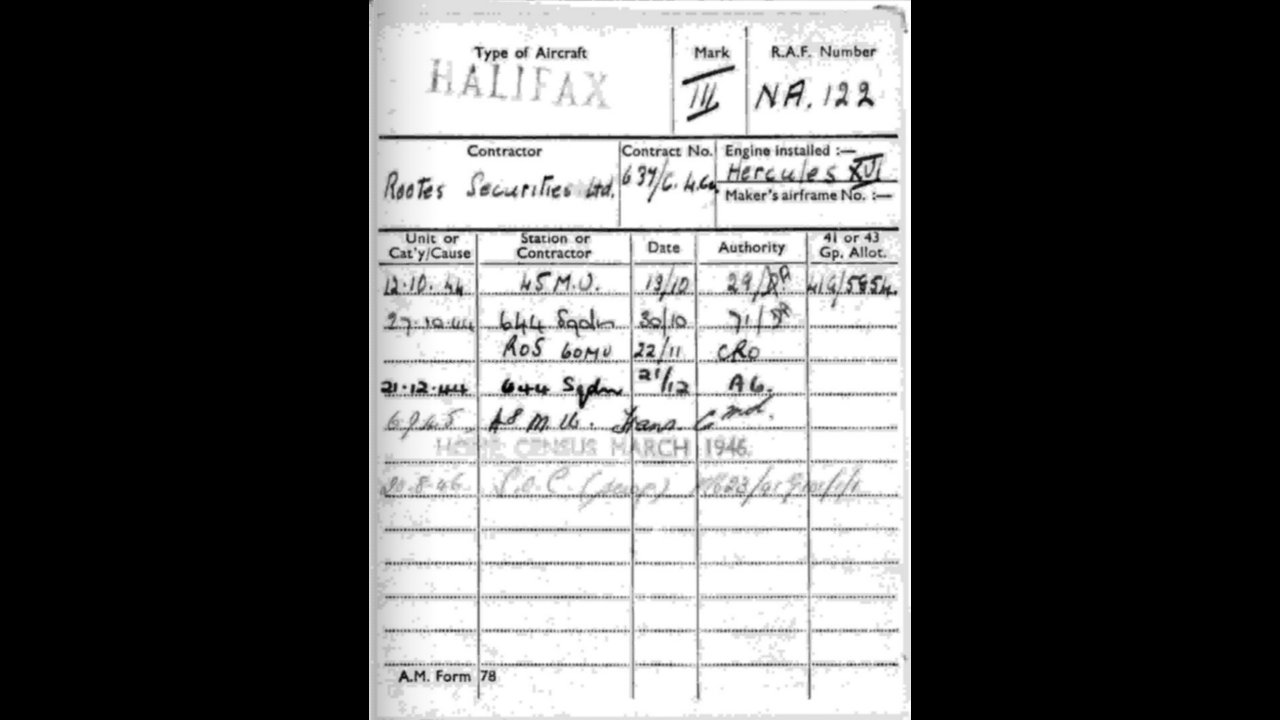 Type of Aircraft Mark R.A.F. Number
HALIFAX III NA.122
Contractor Contract No. Engine installed :—
Rootes Securities Ltd. 637/C.4.Ga. Hercules XVI
Maker's airframe No. :—
Unit or Cat'y/Cause Station or Contractor Date Authority 41 or 43 Gp. Allot.
12.10.44 45 M.U. 13/10 29/DA 41G/5854.
27.10.44 644 Sqdn 30/10 71/
ROS 60MU 22/11 CRO
21.12.44 644 Sqdn 21/12 AG.
6.9.45 48 M.U. Trans. Cmd.
HOME CENSUS MARCH 1946.
30.8.46 S.O.C. (scrap)
A.M. Form 78